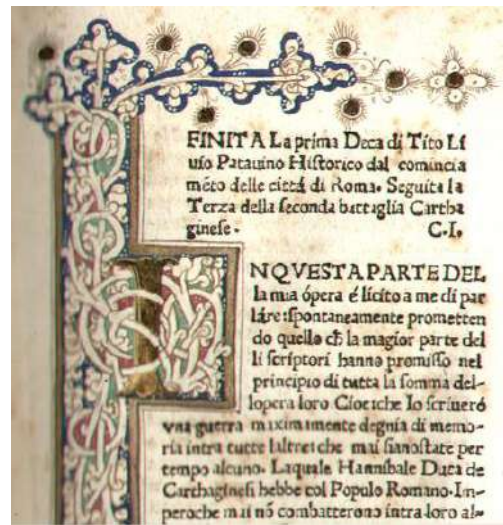 FINITA La prima Deca di Tito Li
uio Patauino Historico dal comincia
mẽto delle cittá di Roma. Seguita la
Terza della seconda battaglia Cartha
ginese. C.I.
INQVESTA PARTE DEL
la mia ópera é licito a me di par
láre: spontaneamente prometten
do quello cħ la magior parte del
li scriptori hanno promisso nel
principio di tutta la somma del-
lopera loro Cioe: che Io scriueró
vna guerra maximamente degnia di memo-
ria intra tutte laltre: che mai siano state per
tempo alcuno. Laquale Hannibale Duca de
Carthaginesi hebbe col Populo Romano. Im-
peroche mai nõ combatterono intra loro al-